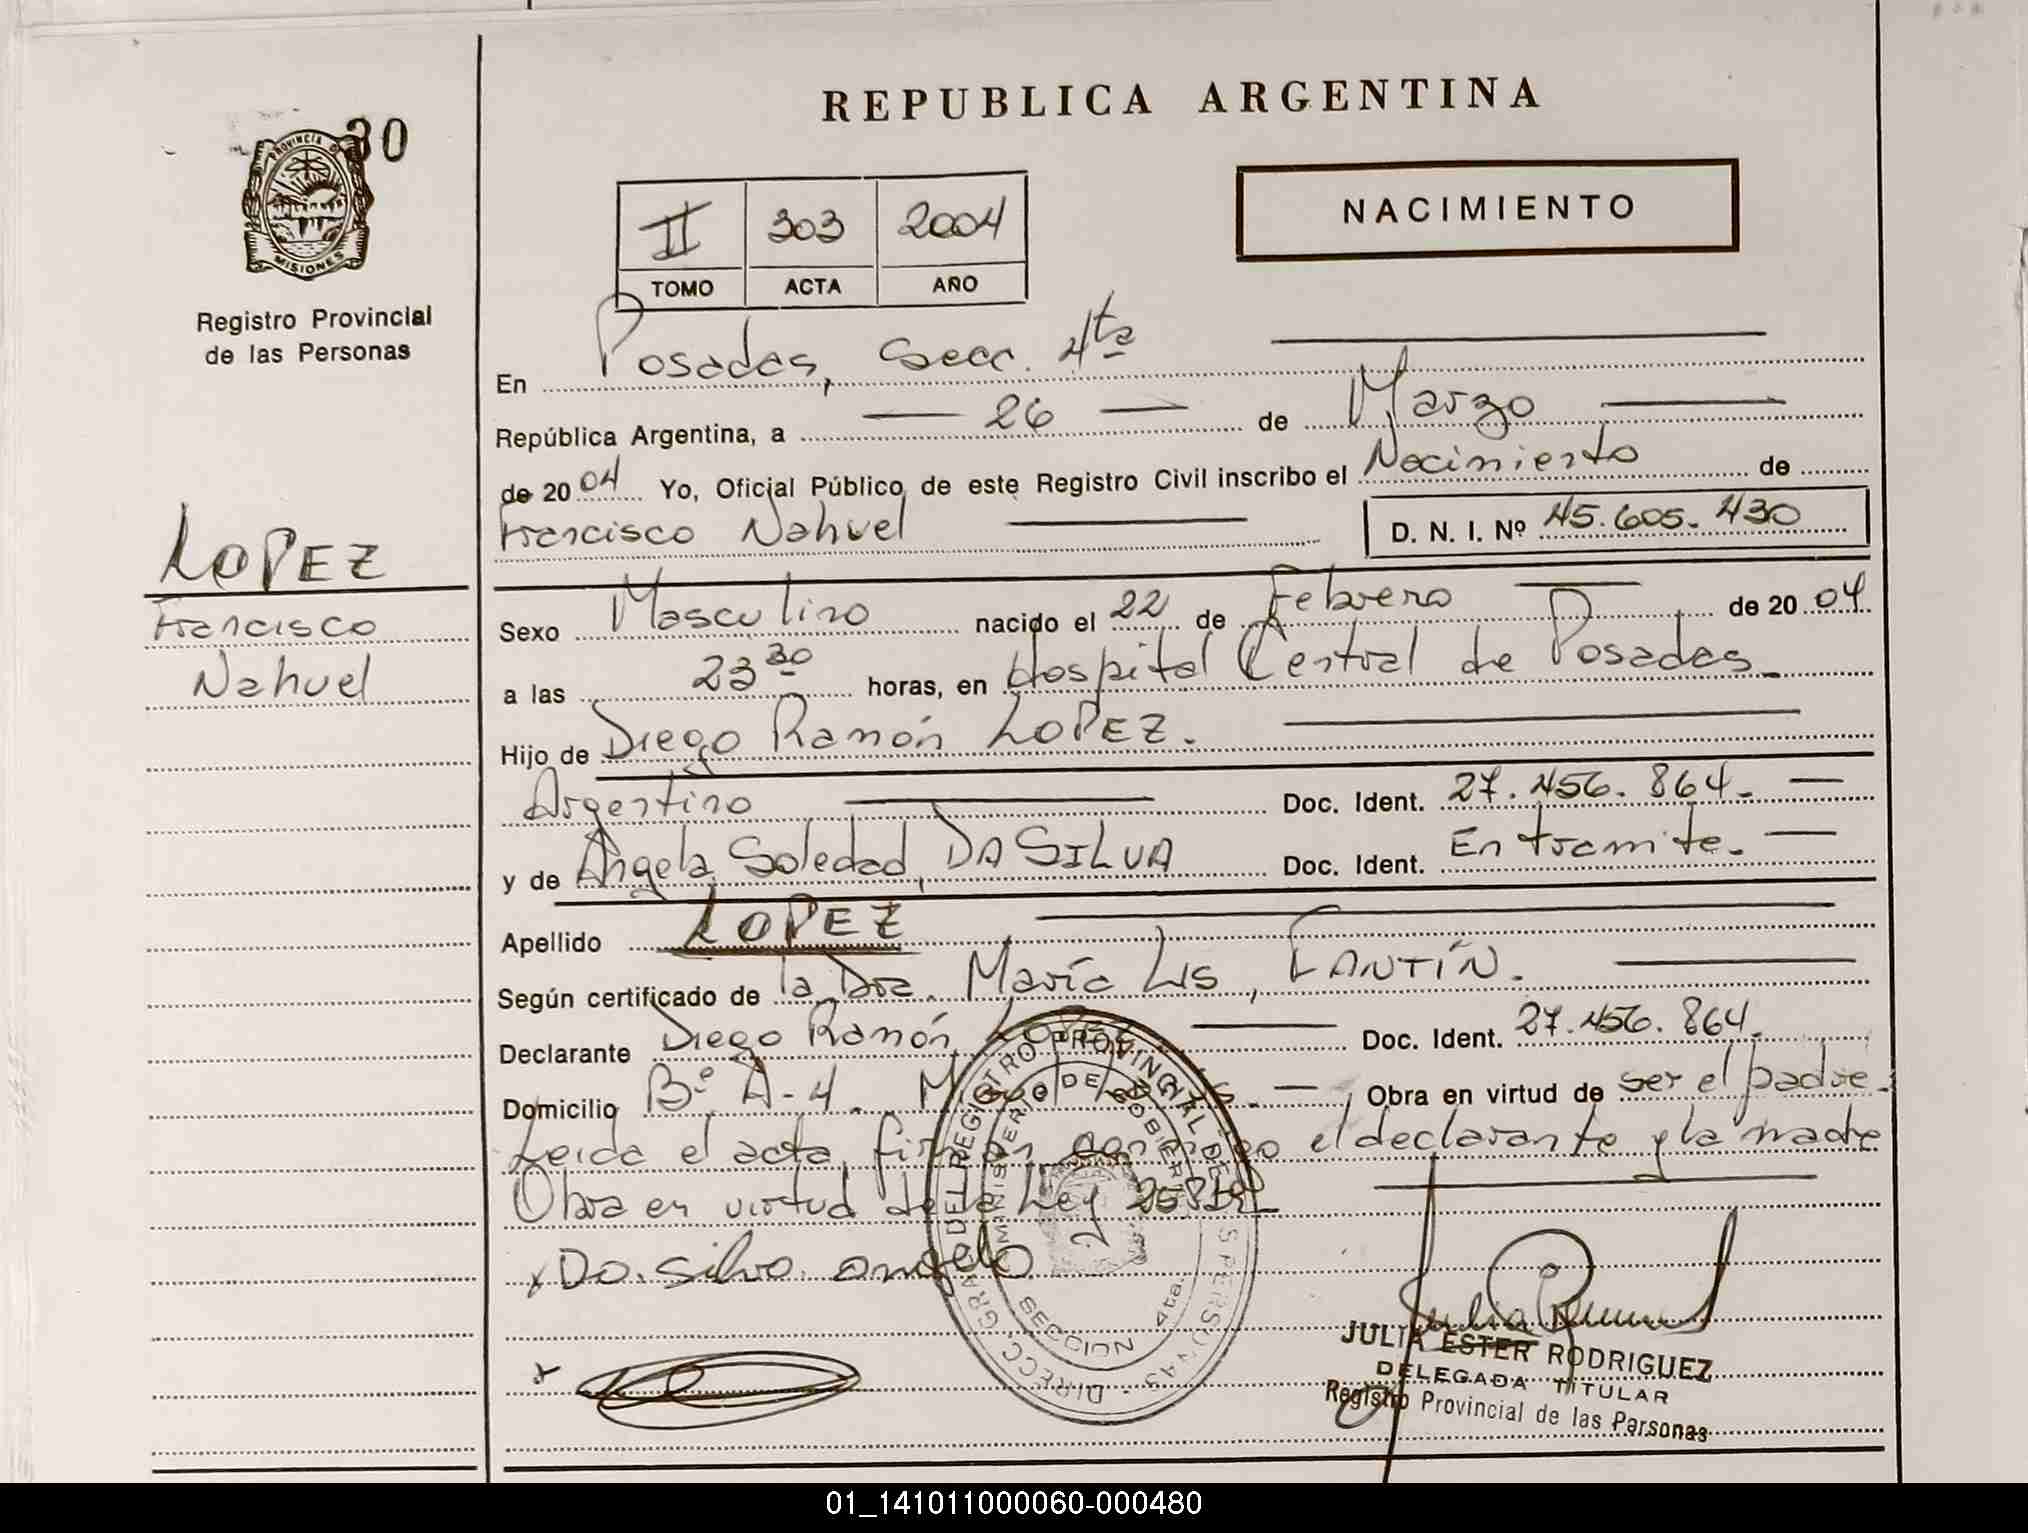 REPUBLICA ARGENTINA
30
PROVINCIA D
MISIONES
Registro Provincial
de las Personas
NACIMIENTO
II 303 2004
TOMO ACTA AÑO
En Posadas, Secc. 4ta
República Argentina, a 26 de Marzo
de 2004 Yo, Oficial Público de este Registro Civil inscribo el Nacimiento de
Francisco Nahuel D. N. I. Nº 45.605.430
LOPEZ
Francisco
Nahuel
Sexo Masculino nacido el 22 de Febrero de 2004
a las 23 30 horas, en Hospital Central de Posadas
Hijo de Diego Ramón LOPEZ.
Argentino Doc. Ident. 27.456.864.
y de Angela Soledad, DA SILVA Doc. Ident. En tramite.
Apellido LOPEZ
Según certificado de la Dra. María Lis, FANTÍN.
Declarante Diego Ramón LOPEZ Doc. Ident. 27.456.864.
Domicilio Bº A-4. Obra en virtud de ser el padre.
Leida el acta, firman conmigo el declarante y la madre
Obra en virtud de la Ley
x Da. Silva. angela
x
DIRECC. GRAL. DEL REGISTRO PROVINCIAL DE PERSONAS
MINISTERIO DE GOBIERNO
SECCION 4ta.
JULIA ESTER RODRIGUEZ
DELEGADA TITULAR
Registro Provincial de las Personas
01_141011000060-000480